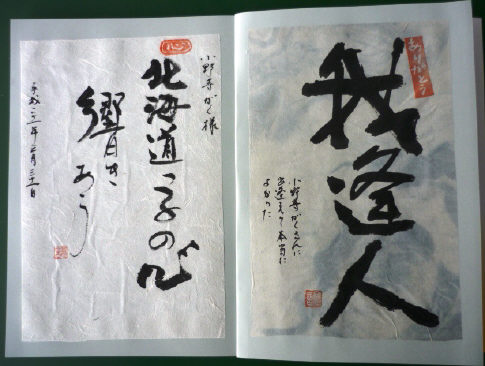 ありがとう
我逢人
小野寺がくさんに
お逢え 本当に
よかった
小野寺がく様
北海道子の心
響き
あう
平成二二年三月三十一日